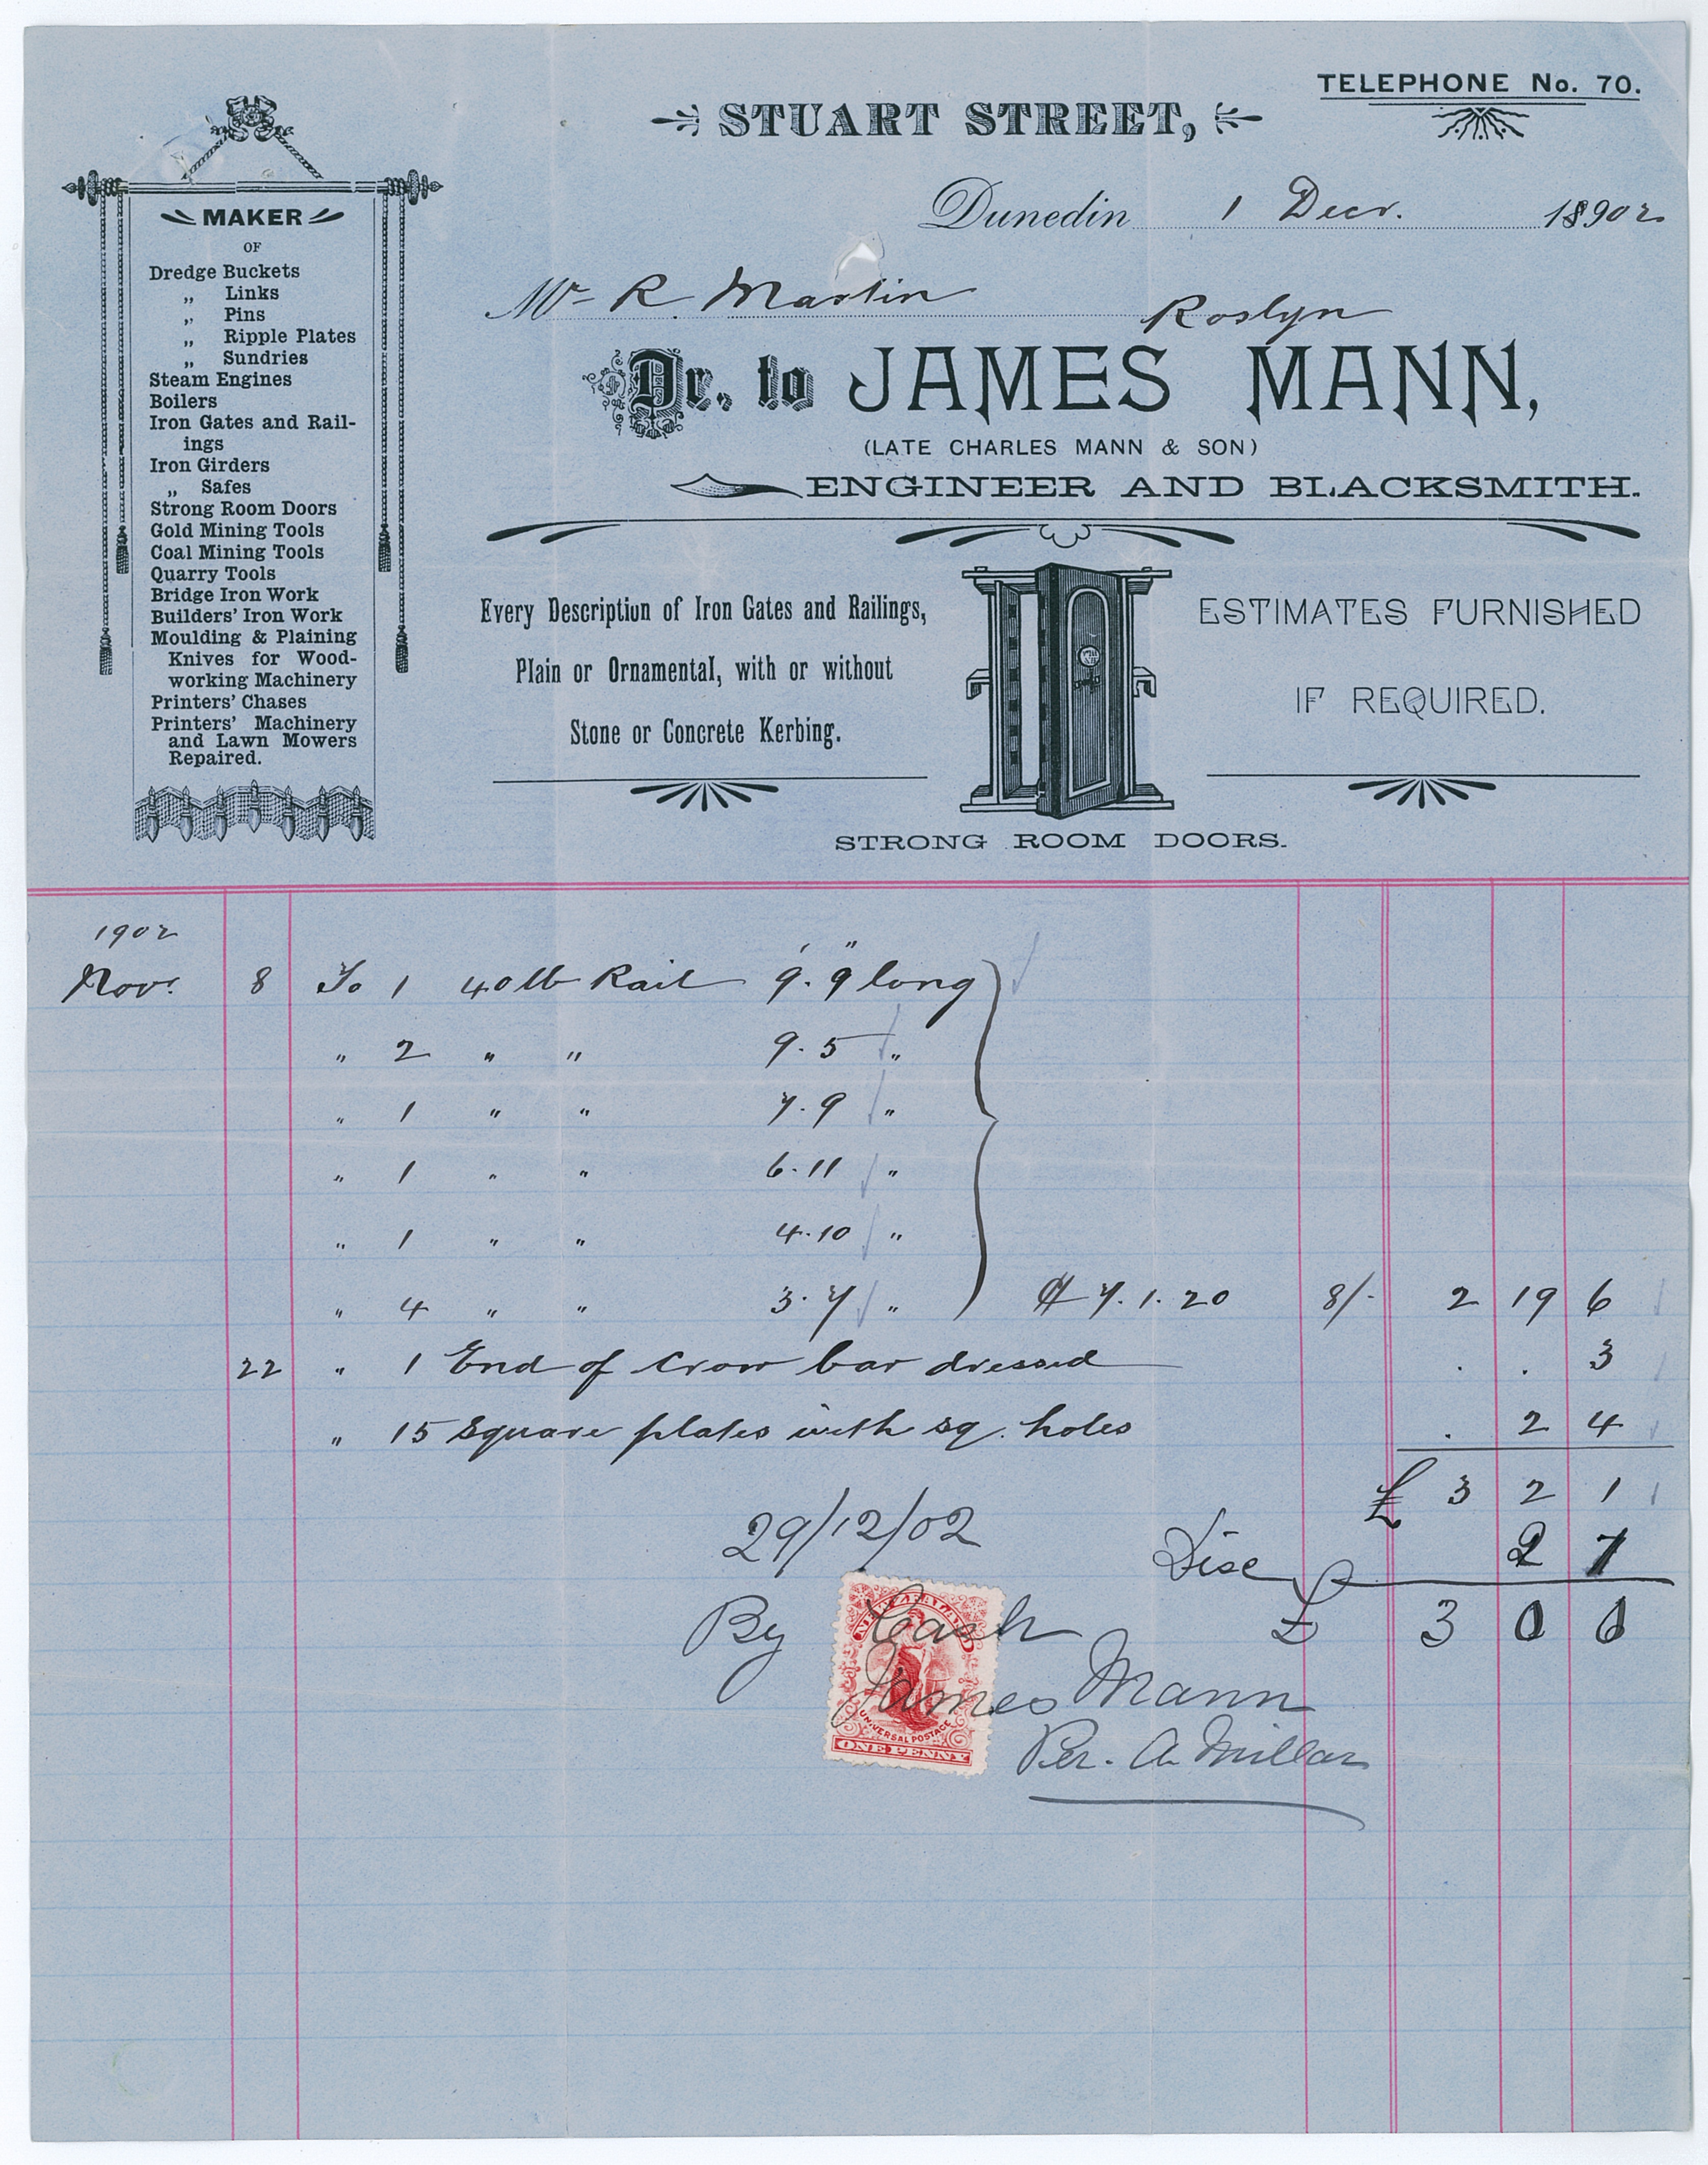 TELEPHONE No. 70.
STUART STREET,
Dunedin 1 Decr. 1902
Mr R. Martin Roslyn
Dr. to JAMES MANN,
(LATE CHARLES MANN & SON)
ENGINEER AND BLACKSMITH.
MAKER
OF
Dredge Buckets
„ Links
„ Pins
„ Ripple Plates
„ Sundries
Steam Engines
Boilers
Iron Gates and Rail-
ings
Iron Girders
„ Safes
Strong Room Doors
Gold Mining Tools
Coal Mining Tools
Quarry Tools
Bridge Iron Work
Builders' Iron Work
Moulding & Plaining
Knives for Wood-
working Machinery
Printers' Chases
Printers' Machinery
and Lawn Mowers
Repaired.
Every Description of Iron Gates and Railings,
Plain or Ornamental, with or without
Stone or Concrete Kerbing.
ESTIMATES FURNISHED
IF REQUIRED.
STRONG ROOM DOORS.
1902
Nov. 8 To 1 40 lb Rail 9' 9" long
„ 2 „ „ 9. 5 „
„ 1 „ „ 7. 9 „
„ 1 „ „ 6. 11 „
„ 1 „ „ 4. 10 „
„ 4 „ „ 3. 7 „ 7. 1. 20 8/- 2 19 6
22 „ 1 End of crow bar dressed . . 3
„ 15 Square plates with sq. holes . 2 4
£ 3 2 1
29/12/02 Disc 2 1
£ 3 0 0
By Cash
James Mann
Per. A Millar
UNIVERSAL POSTAGE
ONE PENNY